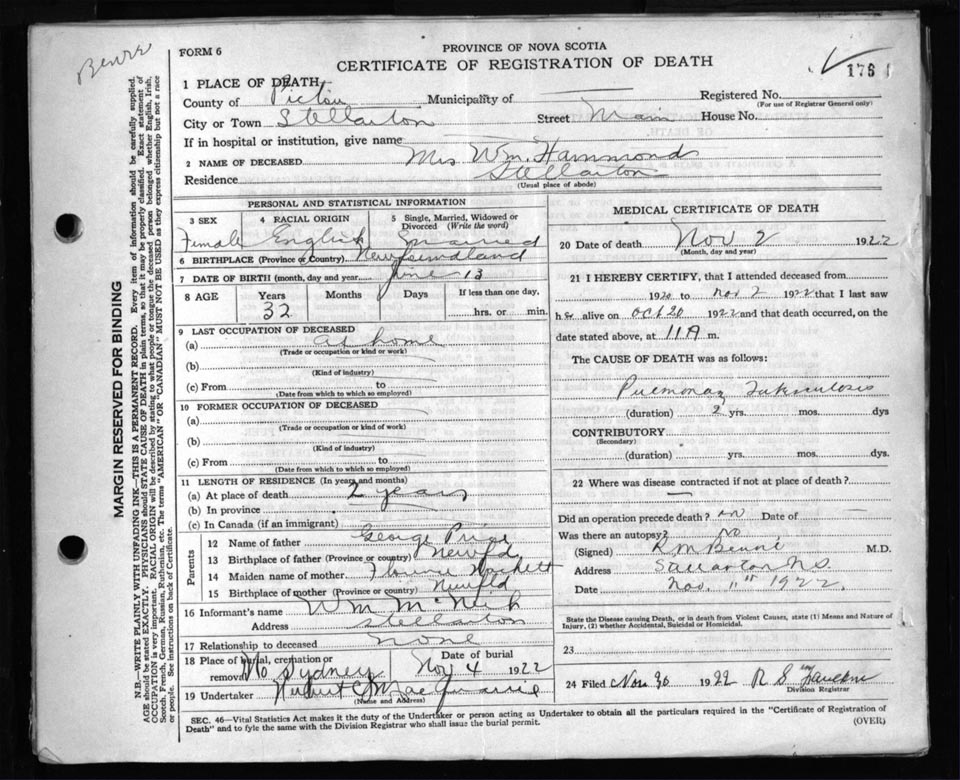 FORM 6
PROVINCE OF NOVA SCOTIA
CERTIFICATE OF REGISTRATION OF DEATH
1 PLACE OF DEATH
County of Pictou Municipality of Registered No.
(For use of Registrar General only)
City or Town Stellarton Street Main House No.
If in hospital or institution, give name
2 NAME OF DECEASED Mrs. Wm. Hammonds
Residence Stellarton
(Usual place of abode)
PERSONAL AND STATISTICAL INFORMATION
3 SEX 4 RACIAL ORIGIN 5 Single, Married, Widowed or Divorced (Write the word)
Female English Married
6 BIRTHPLACE (Province or Country) Newfoundland
7 DATE OF BIRTH (month, day and year) June 13
8 AGE Years Months Days If less than one day,
32 hrs. or min.
9 LAST OCCUPATION OF DECEASED
(a) at home
(Trade or occupation or kind or work)
(b)
(Kind of industry)
(c) From to
(Date from which to which so employed)
10 FORMER OCCUPATION OF DECEASED
(a)
(Trade or occupation or kind of work)
(b)
(Kind of industry)
(c) From to
(Date from which to which so employed)
11 LENGTH OF RESIDENCE (In years and months)
(a) At place of death 2 years
(b) In province
(c) In Canada (if an immigrant)
Parents
12 Name of father George
13 Birthplace of father (Province or country) Newfld
14 Maiden name of mother
15 Birthplace of mother (Province or country) Newfld
16 Informant's name Wm
Address Stellarton
17 Relationship to deceased none
18 Place of burial, cremation or removal No Sydney Date of burial Nov 4 1922
19 Undertaker
(Name and Address)
MEDICAL CERTIFICATE OF DEATH
20 Date of death Nov 2 1922
(Month, day and year)
21 I HEREBY CERTIFY, that I attended deceased from
1920 to Nov 2 1922 that I last saw
her alive on Oct 20 1922 and that death occurred, on the
date stated above, at 11 A m.
The CAUSE OF DEATH was as follows:
Pulmonary Tuberculosis
(duration) 2 yrs. mos. dys
CONTRIBUTORY
(Secondary)
(duration) yrs. mos. dys.
22 Where was disease contracted if not at place of death?
Did an operation precede death? no Date of
Was there an autopsy? no
(Signed) M.D.
Address Stellarton N.S.
Date Nov. 1922.
State the Disease causing Death, or in death from Violent Causes, state (1) Means and Nature of
Injury, (2) whether Accidental, Suicidal or Homicidal.
23
24 Filed Nov 30 1922
Division Registrar
SEC. 46—Vital Statistics Act makes it the duty of the Undertaker or person acting as Undertaker to obtain all the particulars required in the "Certificate of Registration of
Death" and to fyle the same with the Division Registrar who shall issue the burial permit.
(OVER)
MARGIN RESERVED FOR BINDING
N.B.—WRITE PLAINLY WITH UNFADING INK—THIS IS A PERMANENT RECORD. Every item of information should be carefully supplied.
AGE should be stated EXACTLY. PHYSICIANS should STATE CAUSE OF DEATH in plain terms, so that it may be properly classified. Exact statement of
OCCUPATION is very important. RACIAL ORIGIN will be described by stating to what people or tongue the deceased person belonged whether English, Irish,
Scotch, French, German, Russian, Ruthenian, etc. The terms "AMERICAN" OR "CANADIAN" MUST NOT BE USED as they express citizenship but not a race
or people. See instructions on back of Certificate.